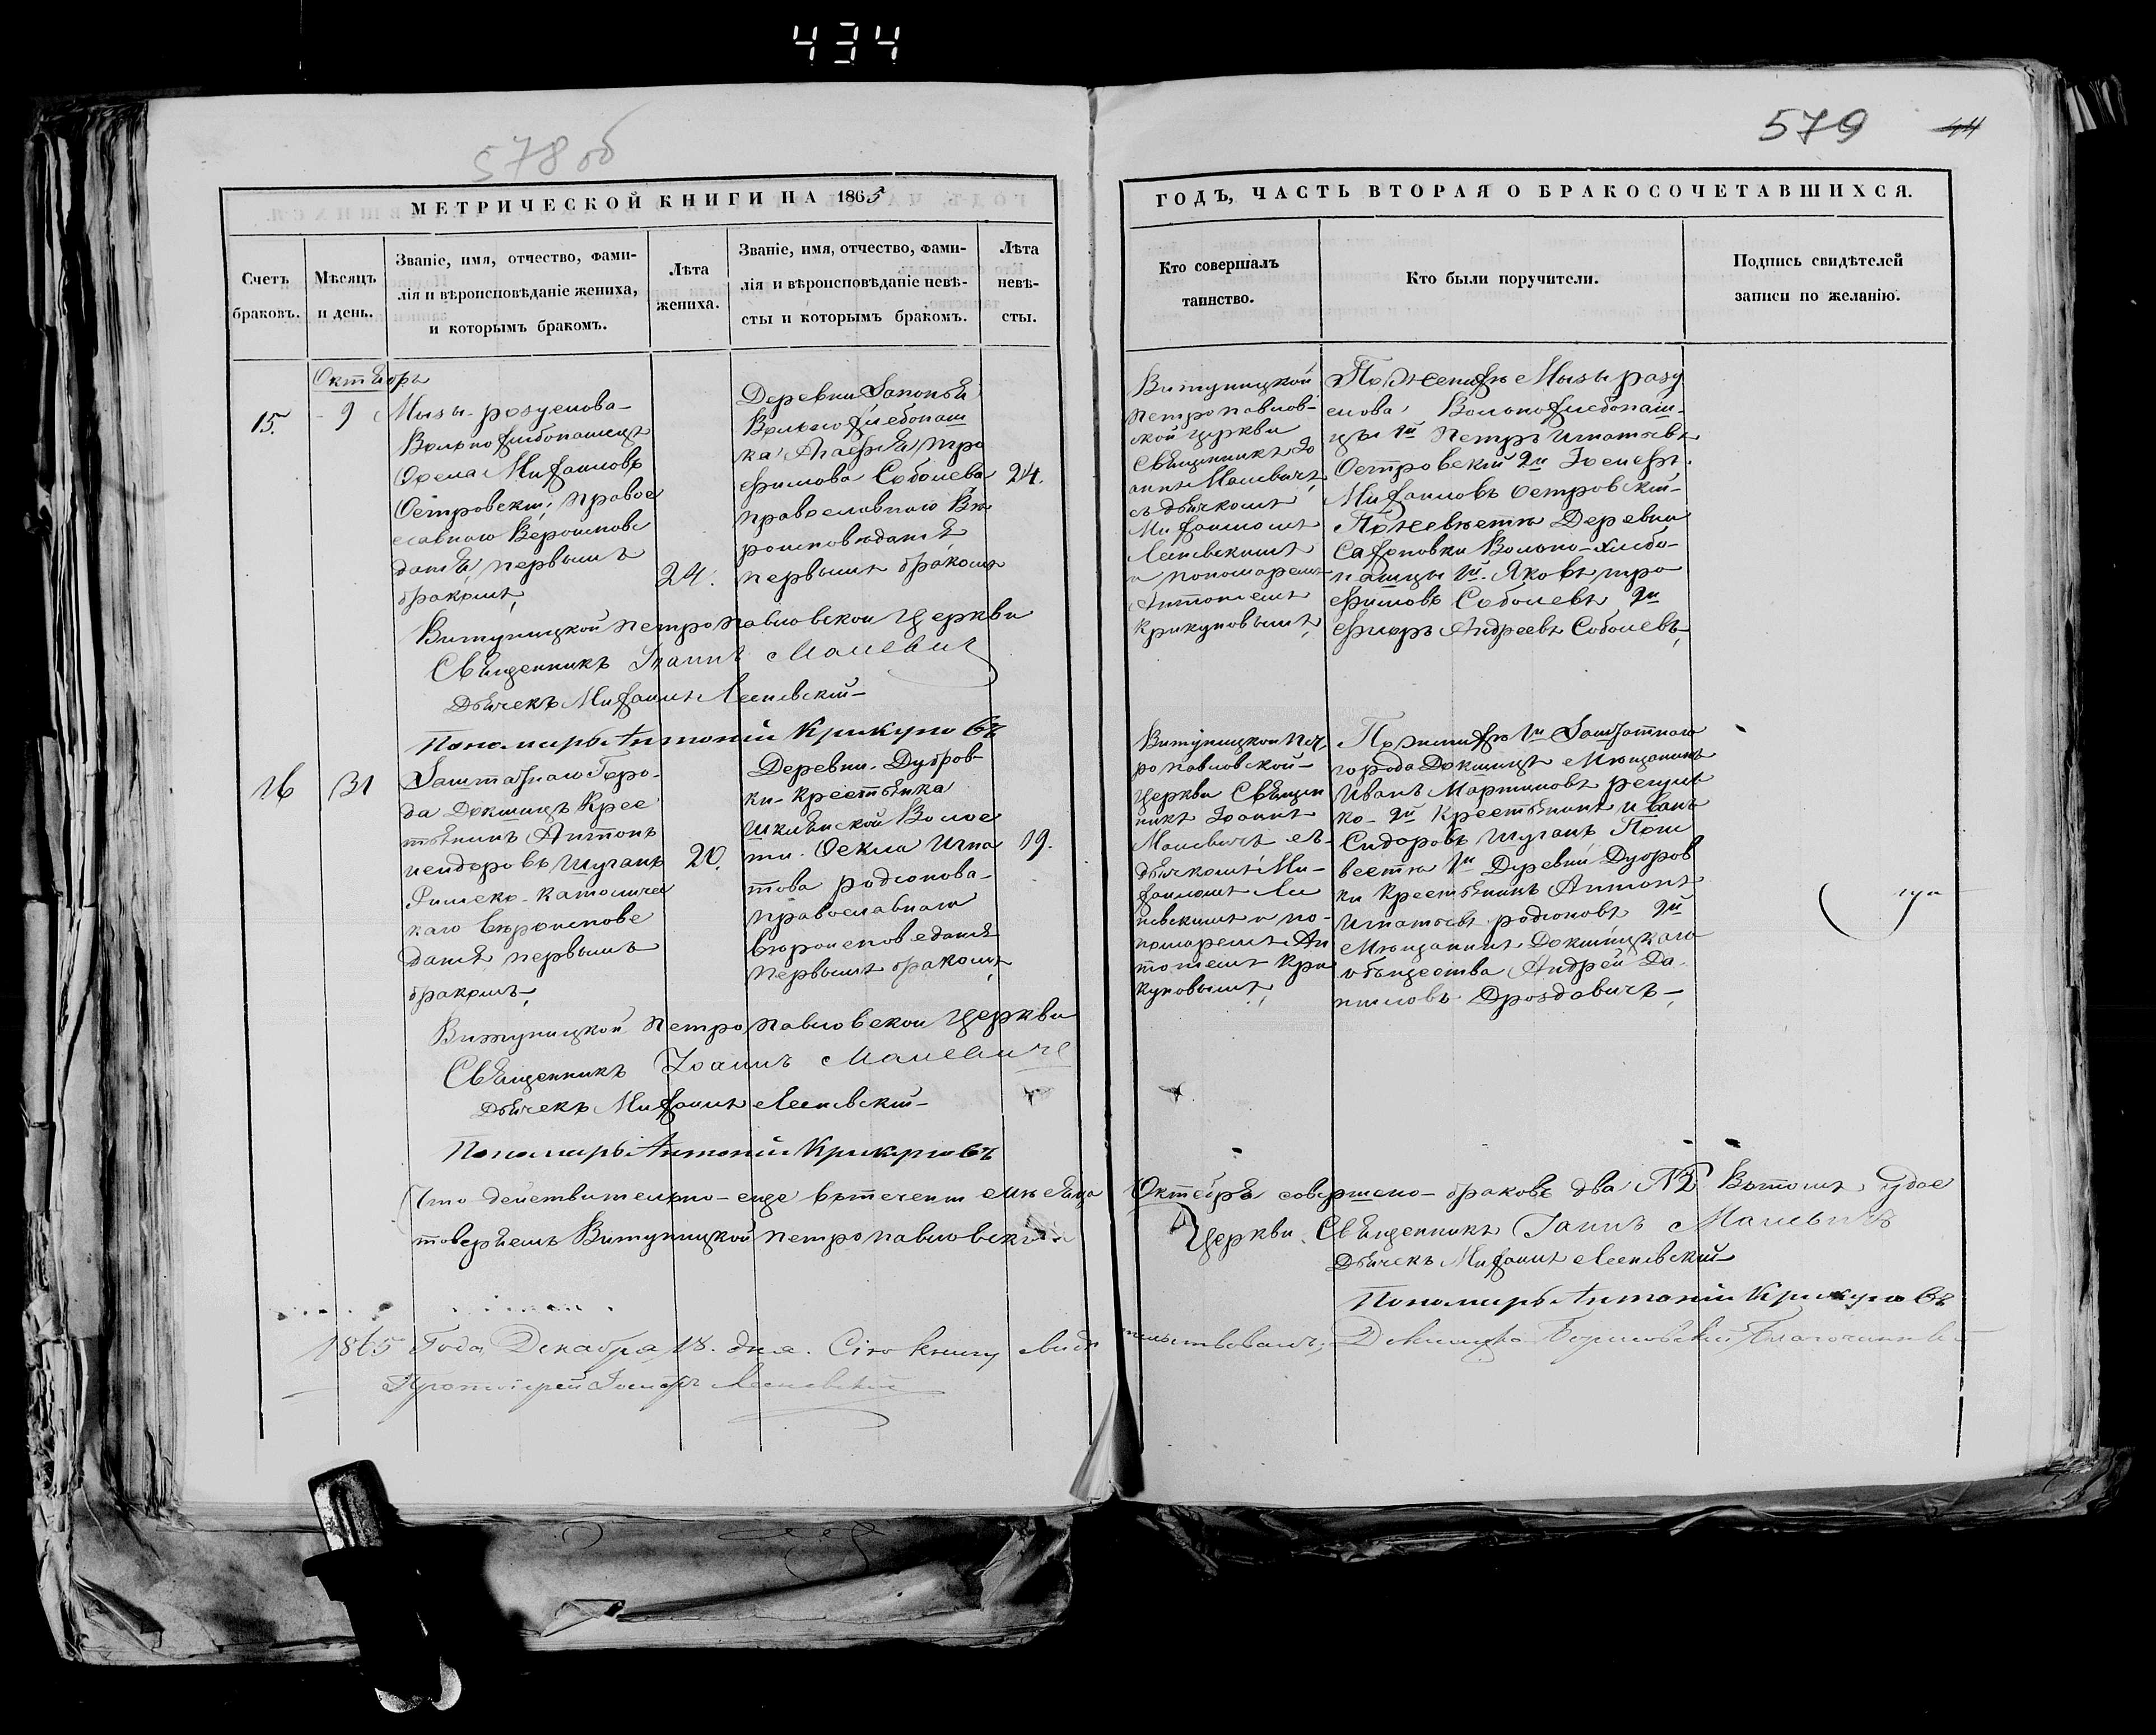 434
578 об
579
44
МЕТРИЧЕСКОЙ КНИГИ НА 1865
ГОДЪ, ЧАСТЬ ВТОРАЯ О БРАКОСОЧЕТАВШИХСЯ.
Счетъ
браковъ.
Мѣсяцъ
и день.
Званіе, имя, отчество, фами-
лія и вѣроисповѣданіе жениха,
и которымъ бракомъ.
Лѣта
жениха.
Званіе, имя, отчество, фами-
лія и вѣроисповѣданіе невѣ-
сты и которымъ бракомъ.
Лѣта
невѣ-
сты.
Кто совершалъ
таинство.
Кто были поручители.
Подпись свидѣтелей
записи по желанію.
Октябрь
15.
9
Мызы розумова-
Вольнохлебопашецъ
Михаиловъ
Островскій, правос
славного Вероиспове
данія, первымъ
бракомъ,
24.
Деревни
Вольнохлебопаш
ка, Агафія, тро
фимова Соболева
православного Вѣ
роисповѣданія
первымъ бракомъ
24.
Витуницкой
петропавлов-
ской церкви
Священникъ Іо
аннъ Малевичъ,
съ дьячкомъ
Михаиломъ
Лесневскимъ
и пономаремъ
Антоніемъ
Крикуновымъ,
По женихѣ Мызы розу
мова, Вольнохлебопаш-
цы 1й Петръ Игнатьевъ
Островскій 2й Іосифъ.
Михаиловъ Островскій-
По невѣстѣ Деревни
Сафоновки Вольно-хлебо-
пашцы 1й. Яковъ, тро
фимовъ Соболевъ 2й
Андреевъ Соболевъ,
Витуницкой петропавловской Церкви
Священникъ Іоаннъ Малевичъ
Дьячекъ Михаилъ Лесневскій-
Пономарь Антоній Крикуновъ
16
31
Заштатнаго Горо-
да Докшицъ Крес
тьянинъ Антонъ
исидоровъ Шуганъ
Римско-католичес
каго вѣроиспове
данія первымъ
бракомъ,
20.
Деревни. Дубров-
ки- Крестьянка
Волос
ти. Фекла Игна
това родіонова-
православнаго
вѣроисповеданія
первымъ бракомъ,
19.
Витуницкой Пет
ропавловской-
церкви Священ
никъ Іоаннъ
Малевичъ съ-
дьячкомъ Ми-
хаиломъ Лес
невскимъ и по-
номаремъ Ан
тоніемъ Кри
куновымъ,
По женихѣ 1й Заштатнаго
города Докшицъ Мѣщанинъ
Иванъ Мартиновъ
2й Крестьянинъ Иванъ
Сидоровъ Шуганъ По не
вестѣ 1й Деревни Дубров
ки Крестьянинъ Антонъ
Игнатьевъ родіоновъ 2й
Мѣщанинъ Докшицкаго
общества Андрей Да-
ниловъ Дроздовичъ,
Витуницкой петропавловской Церкви
Священникъ Іоаннъ Малевичъ
Дьячекъ Михаилъ Лесневскій-
Пономарь Антоній Крикуновъ
Что действительно-сице въ теченіи Мѣсяца
Октября совершено-браковъ два № 2 Въ томъ, удос
товеряемъ Витуницкой петропавловской
Церкви. Священникъ Іоаннъ Малевичъ
Дьячекъ Михаилъ Лесневскій
Пономарь Антоній Крикуновъ
1865 Года Декабря 18. дня. Сію книгу свидѣ
тельствовалъ, Борисовскій Благочинный
Протоіерей Іосифъ Лесневскій